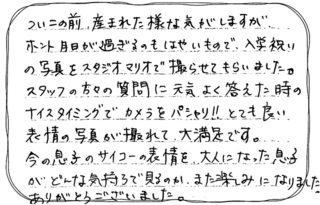 ついこの前、産まれた様な気がしますが、
ホント月日が過ぎるのもはやいもので、入学祝い
の写真をスタジオマリオで撮らせてもらいました。
スタッフの方々の質問に元気よく答えた時の
ナイスタイミングでカメラをパシャリ!!とても良い
表情の写真が撮れて、大満足です。
今の息子のサイコーの表情を、大人になった息子
がどんな気持ちで見るのか、また楽しみになりました
ありがとうございました。